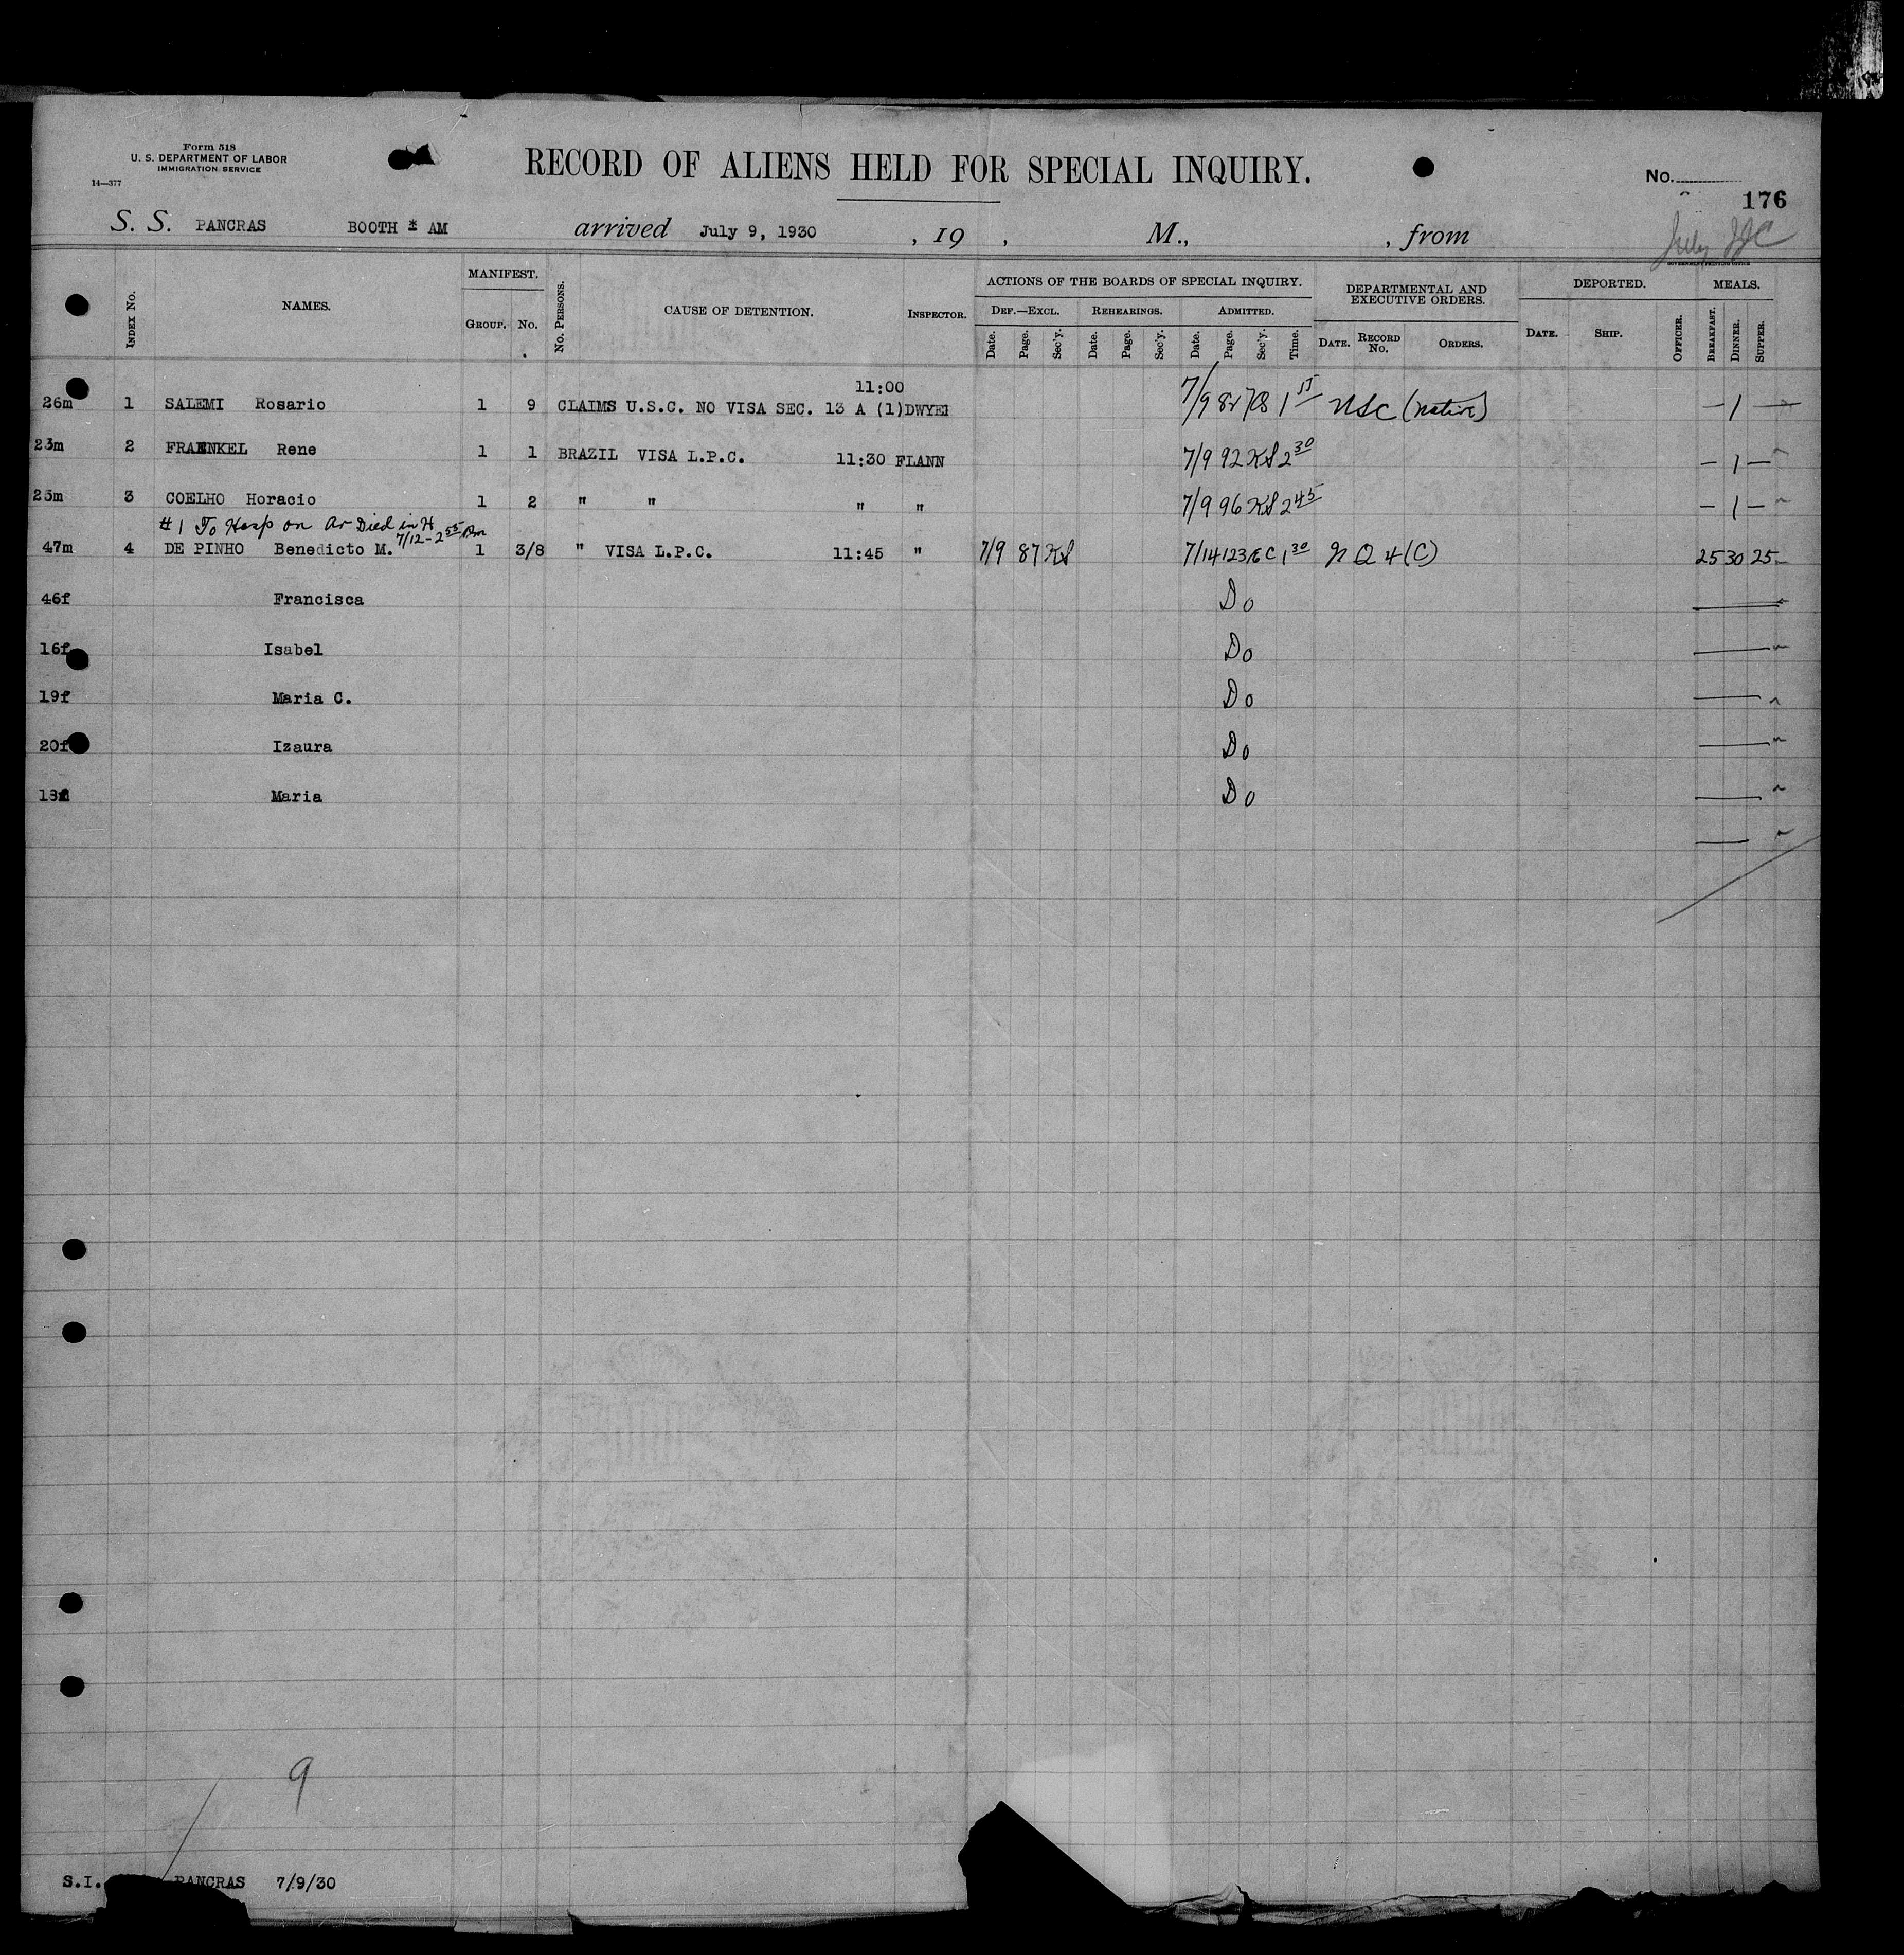 Form 518
U. S. DEPARTMENT OF LABOR
IMMIGRATION SERVICE
14—377
RECORD OF ALIENS HELD FOR SPECIAL INQUIRY.
No.
176
S. S. PANCRAS BOOTH * AM arrived July 9, 1930 , 19 , M., , from
July
GOVERNMENT PRINTING OFFICE
INDEX No. NAMES. MANIFEST. GROUP. No. No. PERSONS. CAUSE OF DETENTION. INSPECTOR. ACTIONS OF THE BOARDS OF SPECIAL INQUIRY. DEPARTMENTAL AND EXECUTIVE ORDERS. DEPORTED. MEALS.
DEF.—EXCL. REHEARINGS. ADMITTED.
Date. Page. Sec'y. Date. Page. Sec'y. Date. Page. Sec'y. Time. DATE. RECORD No. ORDERS. DATE. SHIP. OFFICER. BREAKFAST. DINNER. SUPPER.
11:00
26m 1 SALEMI Rosario 1 9 CLAIMS U.S.C. NO VISA SEC. 13 A (1) DWYER 7/9 82 1 15 USC (native) — 1 —
23m 2 FRAENKEL Rene 1 1 BRAZIL VISA L.P.C. 11:30 FLANN 7/9 92 KS 2 30 — 1 —
25m 3 COELHO Horacio 1 2 " " " " 7/9 96 KS 2 45 — 1 —
#1 To Hosp on Ar Died in H 7/12 - 2 55 Pm
47m 4 DE PINHO Benedicto M. 1 3/8 " VISA L.P.C. 11:45 " 7/9 87 KS 7/14 123 EC 1 30 N Q 4 (C) 25 30 25
46f Francisca Do
16f Isabel Do
19f Maria C. Do
20f Izaura Do
Maria Do
9
S.I. PANCRAS 7/9/30